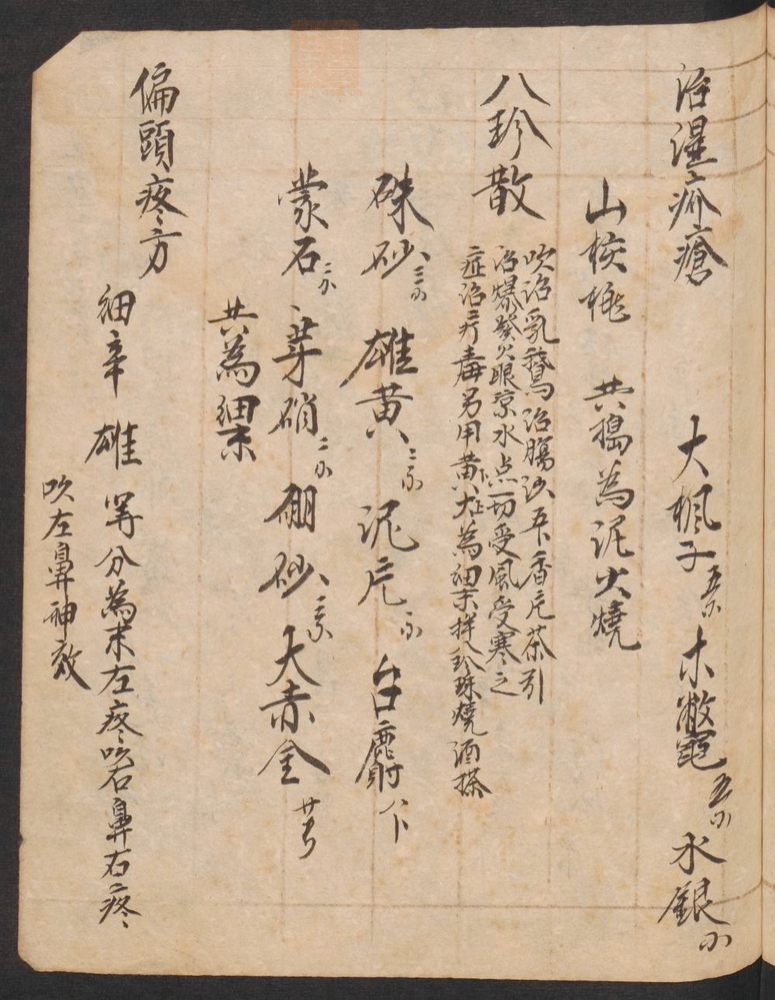 治濕疥瘡 大楓子 木鱉 水銀
山核桃 共搗為泥火燒
八珍散
吹治乳鵞治腸沙五卜香片茶引
治爆發火眼凉水点一切受風受寒之
症治疔毒另用黄 為細末拌珍珠燒酒搽
硃砂 雄黄 泥片 台麝 八卜
蒙石 芽硝 硼砂 大赤金
共為細末
偏頭疼方
細辛 雄 等分為末左疼吹右鼻右疼
吹左鼻神效